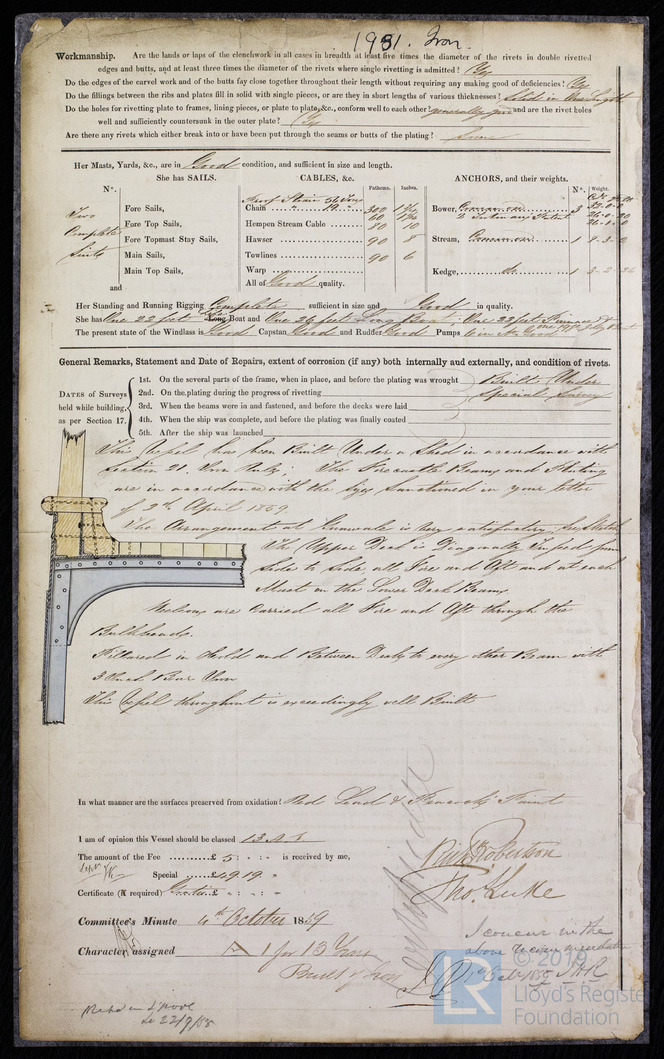 1931. Iron.
Workmanship. Are the lands or laps of the clenchwork in all cases in breadth at least five times the diameter of the rivets in double rivetted
edges and butts, and at least three times the diameter of the rivets where single rivetting is admitted?
Do the edges of the carvel work and of the butts fay close together throughout their length without requiring any making good of deficiencies?
Do the fillings between the ribs and plates fill in solid with single pieces, or are they in short lengths of various thicknesses? Solid in One Length
Do the holes for rivetting plate to frames, lining pieces, or plate to plate, &c., conform well to each other? generally so and are the rivet holes
well and sufficiently countersunk in the outer plate?
Are there any rivets which either break into or have been put through the seams or butts of the plating? Some
Her Masts, Yards, &c., are in Good condition, and sufficient in size and length.
She has SAILS. CABLES, &c. Fathoms. Inches. ANCHORS, and their weights. Nº. Weight.
Nº.
Two Complete Suits
Fore Sails,
Fore Top Sails,
Fore Topmast Stay Sails,
Main Sails,
Main Top Sails,
and
Chain 300
Hempen Stream Cable 80 10
Hawser 90 8
Towlines 90 6
Warp
All of Good quality.
Bower, 3
Stream, 1
Kedge, do. 1
Her Standing and Running Rigging Complete sufficient in size and Good in quality.
She has One 22 feet Long Boat and One 26 feet Long Boat, One 22 feet
The present state of the Windlass is Good Capstan Good and Rudder Good Pumps
General Remarks, Statement and Date of Repairs, extent of corrosion (if any) both internally and externally, and condition of rivets.
DATES of Surveys held while building, as per Section 17.
1st. On the several parts of the frame, when in place, and before the plating was wrought Built Under
2nd. On the plating during the progress of rivetting Special Survey
3rd. When the beams were in and fastened, and before the decks were laid
4th. When the ship was complete, and before the plating was finally coated
5th. After the ship was launched
This Vessel has been Built Under a Shed in accordance with
Section 21. Iron Rules; The Forecastle Beams and Plating
are in accordance with the sanctioned in your letter
of 2nd April 1859.
The Arrangement at Gunwale is very satisfactory
The Upper Deck is Diagonally from
Side to Side all Fore and Aft and at each
Mast on the Lower Deck Beams
Keelsons are Carried all Fore and Aft through the
Bulkheads.
Pillared in Hold and Between Decks to every other Beam with
3 Inch Bar Iron
This Vessel throughout is exceedingly well Built
In what manner are the surfaces preserved from oxidation? Red Lead & Peacock's Paint
I am of opinion this Vessel should be classed 13 A.1
The amount of the Fee ......... £ 5 : - : - is received by me,
Special ...... £ 49.19
Certificate (if required) £
Robertson
Thos. Luke
Committee's Minute 4th October 1859
Character assigned A 1 for 13 Years
Built of Iron
I concur in the
above recommendation
© 2019
LR
Lloyd's Register
Foundation